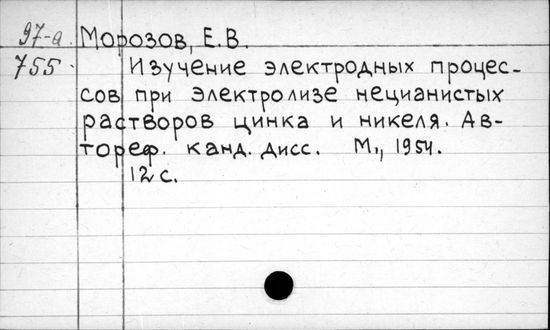 97-а Морозов, Е.В.
755. Изучение электродных процес-
сов при электролизе нецианистых
растворов цинка и никеля. Ав-
тореф. канд. дисс. М., 1954.
12 с.